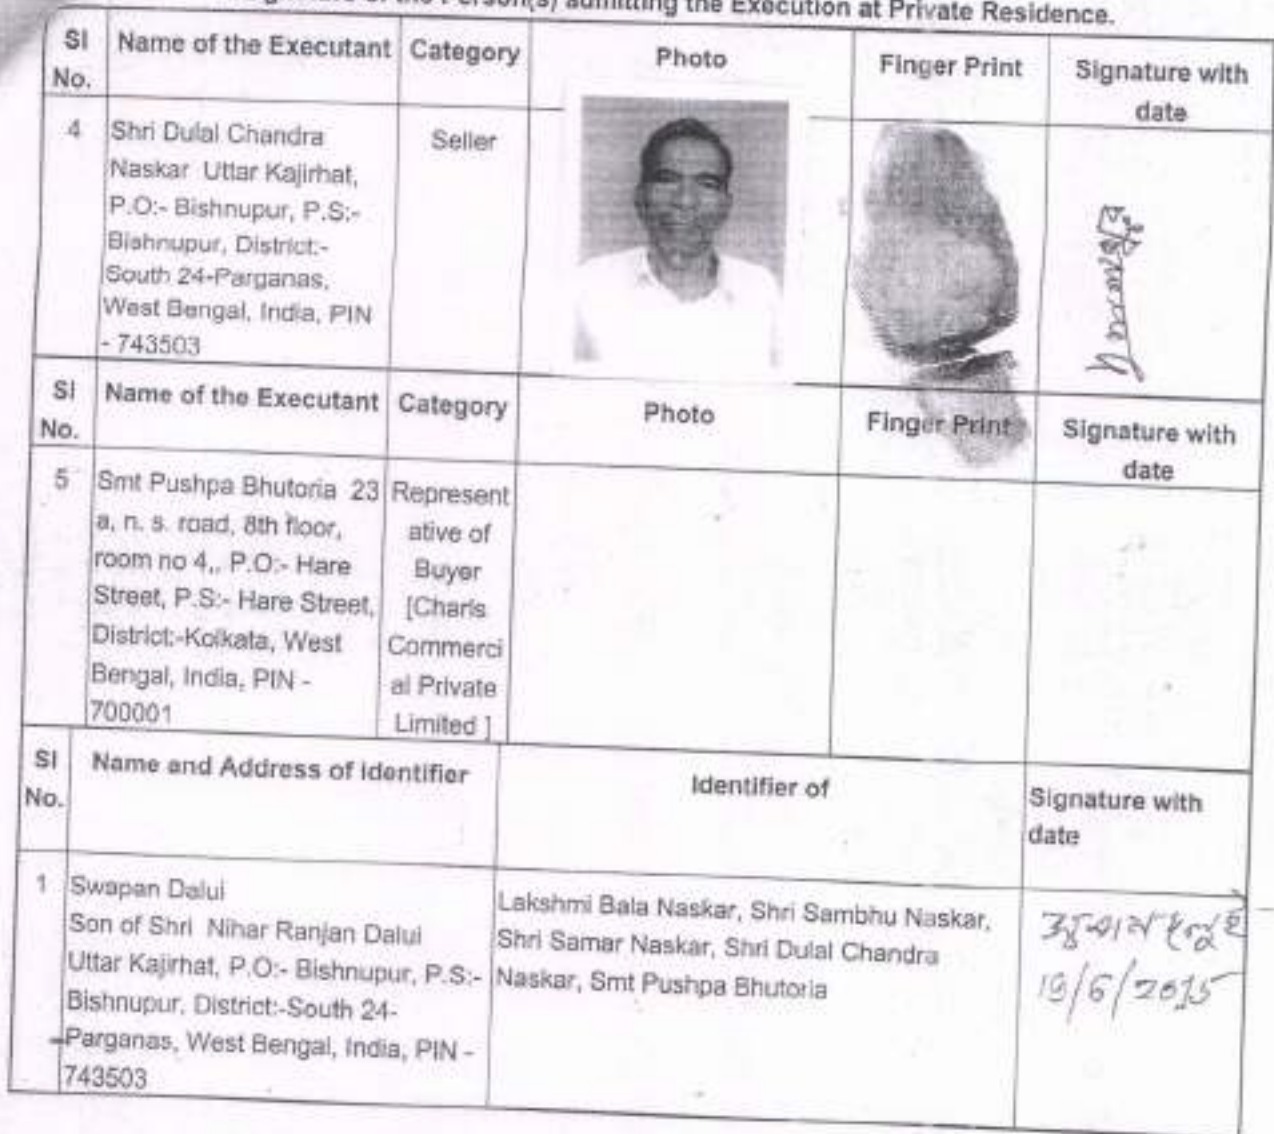 the Person(s) admitting the Execution at Private Residence.
Sl No. Name of the Executant Category Photo Finger Print Signature with date
4 Shri Dulal Chandra
Naskar Uttar Kajirhat,
P.O:- Bishnupur, P.S:-
Bishnupur, District:-
South 24-Parganas,
West Bengal, India, PIN
- 743503
Seller
Sl No. Name of the Executant Category Photo Finger Print Signature with date
5 Smt Pushpa Bhutoria 23
a, n. s. road, 8th floor,
room no 4,, P.O:- Hare
Street, P.S:- Hare Street,
District:-Kolkata, West
Bengal, India, PIN -
700001
Represent
ative of
Buyer
[Charls
Commerci
al Private
Limited ]
Sl No. Name and Address of Identifier Identifier of Signature with date
1 Swapan Dalui
Son of Shri Nihar Ranjan Dalui
Uttar Kajirhat, P.O:- Bishnupur, P.S:-
Bishnupur, District:-South 24-
Parganas, West Bengal, India, PIN -
743503
Lakshmi Bala Naskar, Shri Sambhu Naskar,
Shri Samar Naskar, Shri Dulal Chandra
Naskar, Smt Pushpa Bhutoria
19/6/2015